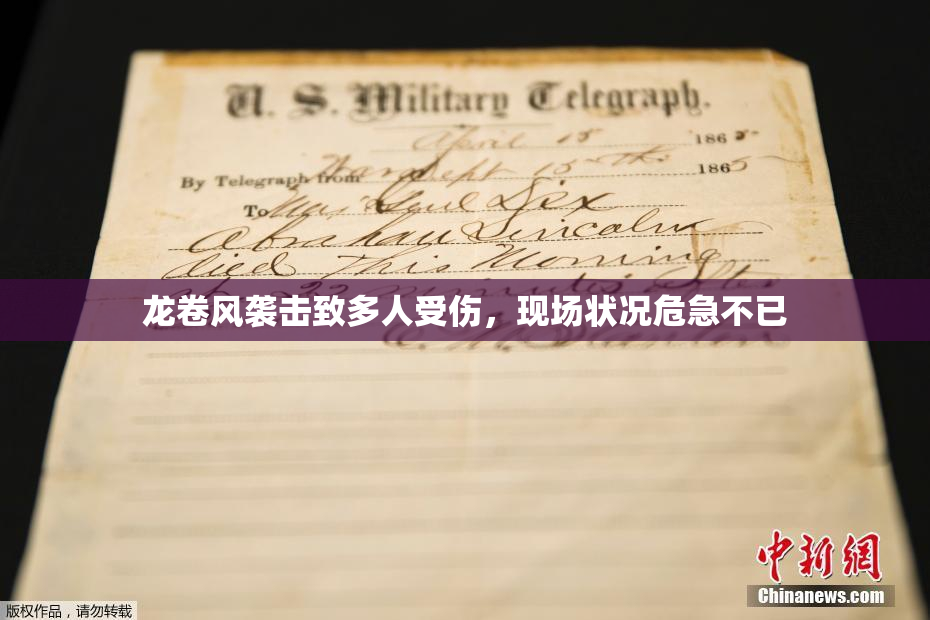 U. S. Military Telegraph.
April 15 1865.
By Telegraph from War Dept 15th 1865
To Maj Genl Dix
Abraham Lincoln
died This Morning
at 22 minutes after
龙卷风袭击致多人受伤，现场状况危急不已
E. M. Stanton
中新網
Chinanews.com
版权作品，请勿转载